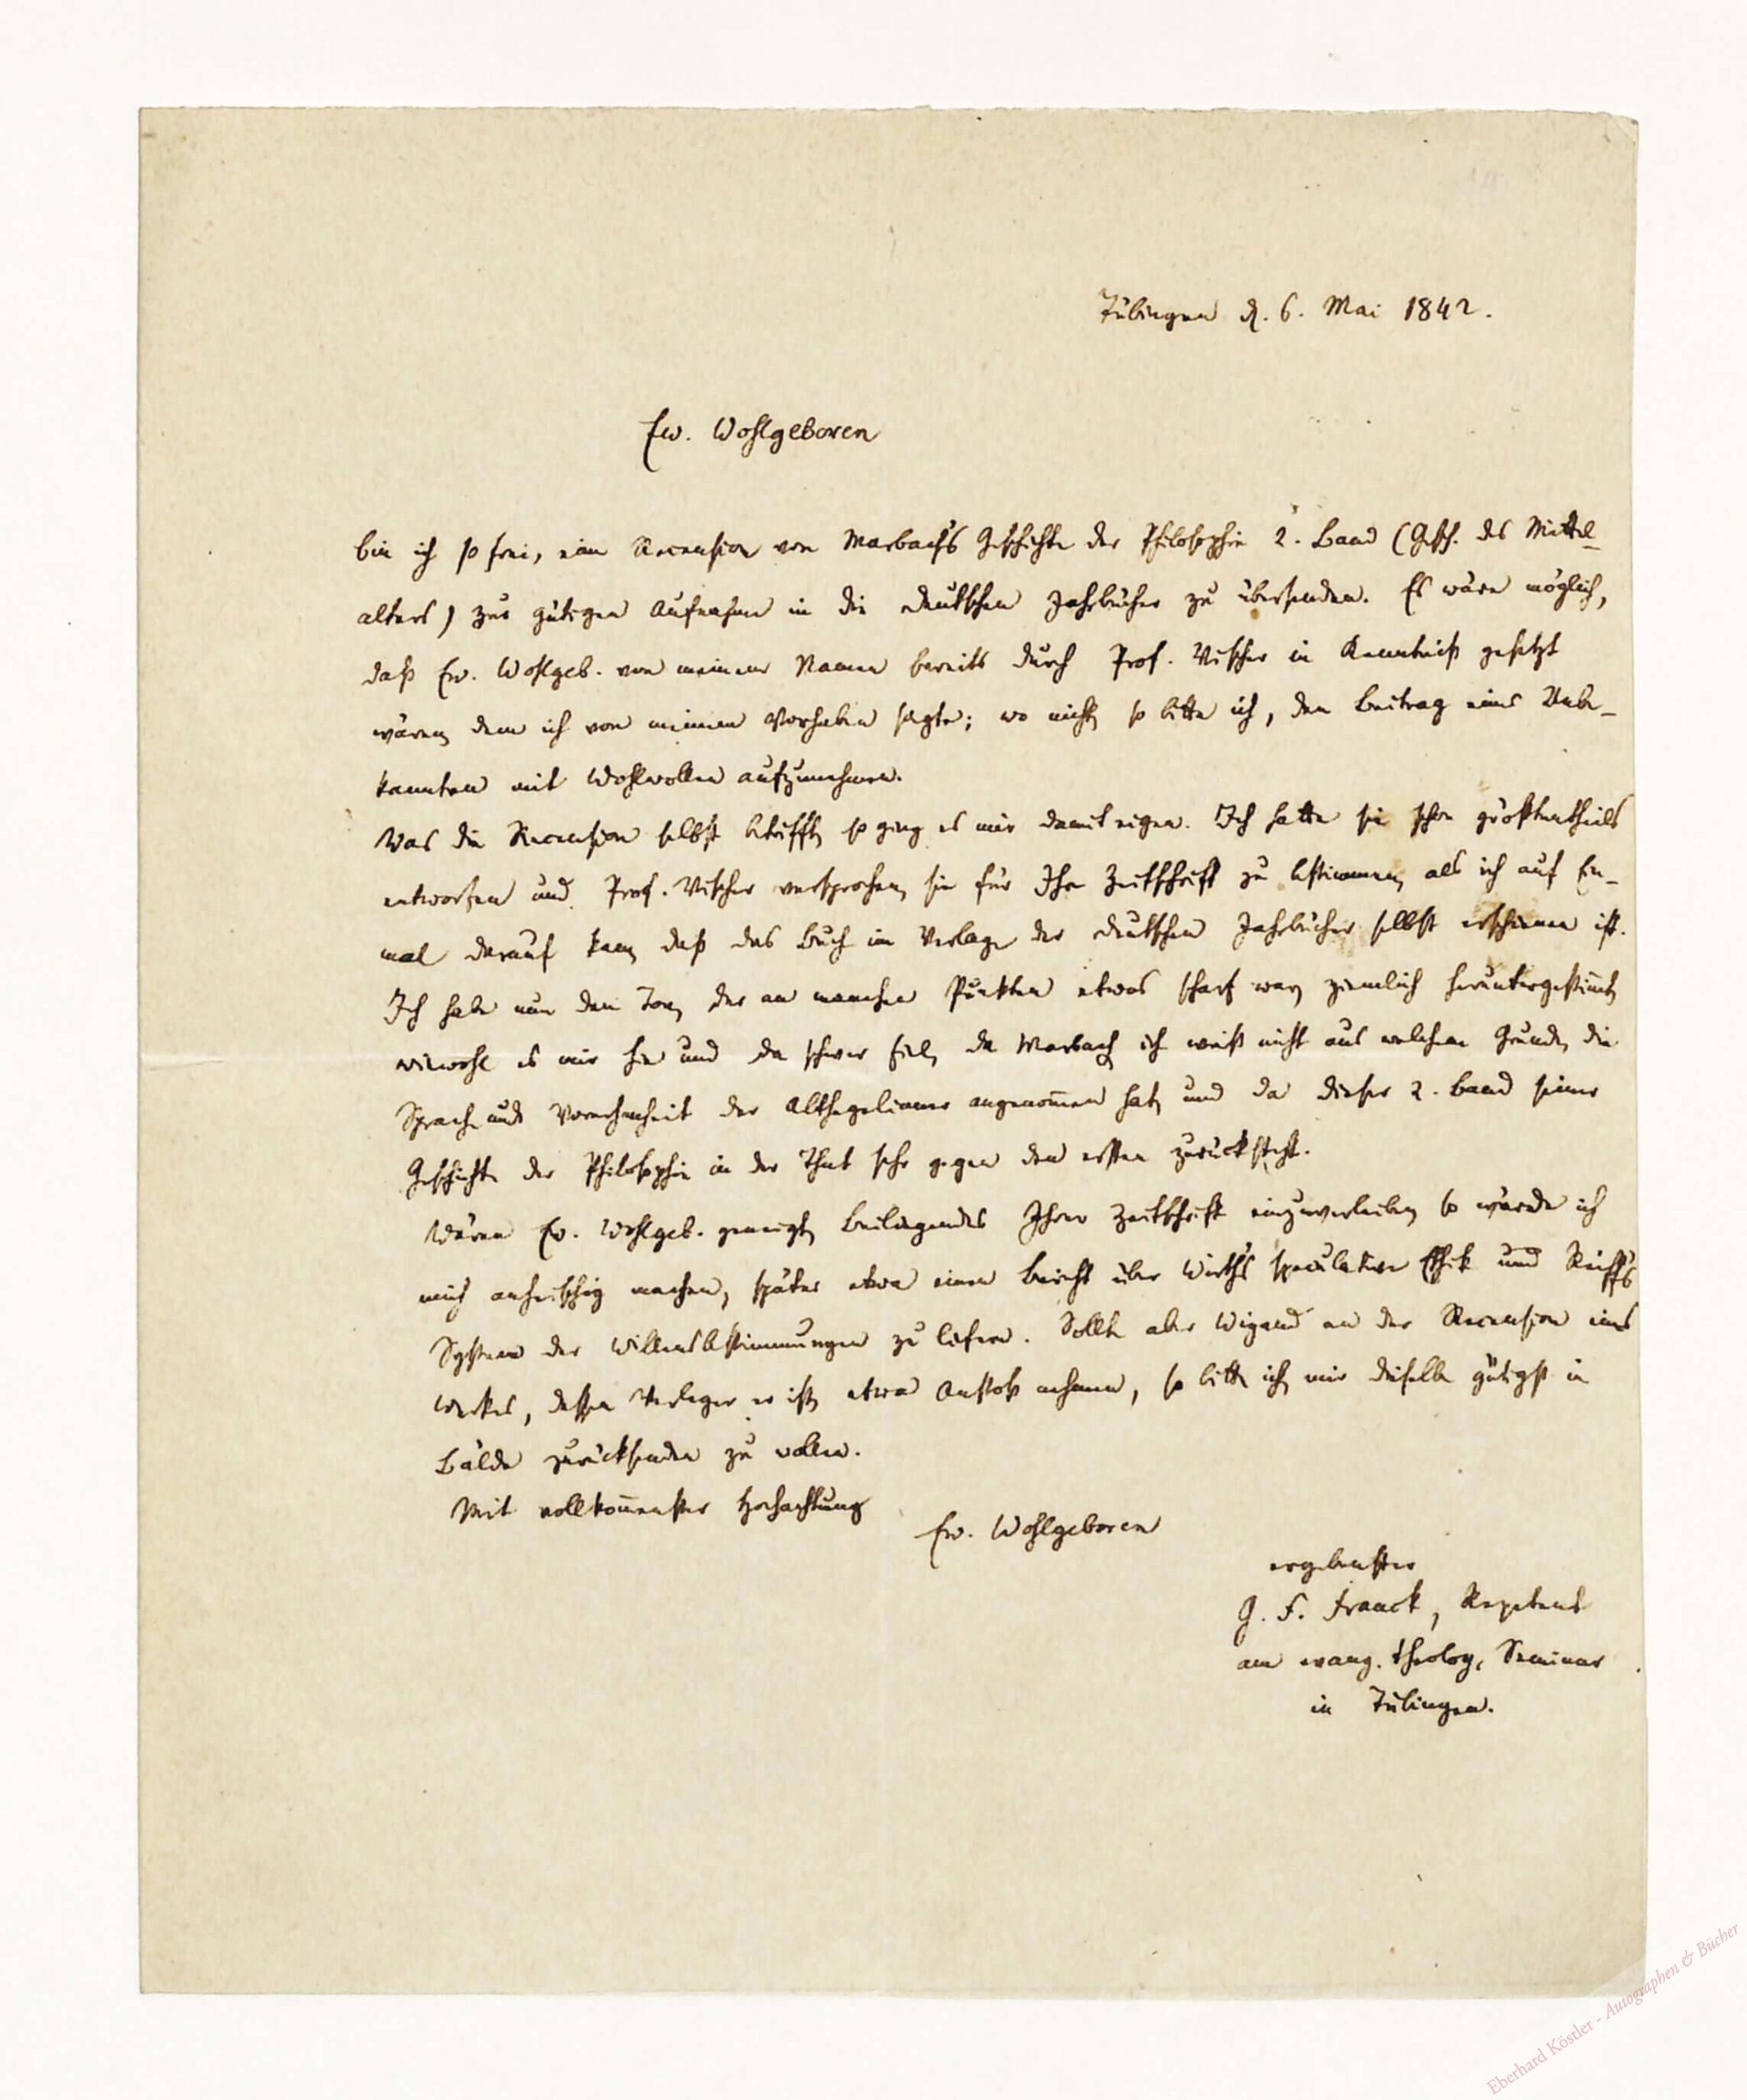 Tübingen d. 6. Mai 1842.
Ew. Wohlgeboren
bin ich so frei, eine Recension von Marbach's Geschichte der Philosophie 2. Band (Gesch. des Mittel-
alters) zur gütigen Aufnahme in die deutschen Jahrbücher zu übersenden. Es wäre möglich,
daß Ew. Wohlgeb. von meinem Namen bereits durch Prof. Vischer in Kenntniß gesetzt
wären, dem ich von meinem Vorhaben sagte; wo nicht, so bitte ich, den Beitrag eines Unbe-
kannten mit Wohlwollen aufzunehmen.
Was die Recension selbst betrifft, so ging es mir damit eigen. Ich hatte sie schon größtentheils
entworfen und Prof. Vischer versprochen, sie für Ihre Zeitschrift zu bestimmen, als ich auf Ein-
mal darauf kam, daß das Buch im Verlage der deutschen Jahrbücher selbst erschienen ist.
Ich habe nun den Ton, der an manchen Punkten etwas scharf war, ziemlich heruntergestimt,
wiewohl es mir hie und da schwer fiel, da Marbach, ich weiß nicht aus welchem Grunde, die
Sprache und Vornehmheit der Althegelianer angenomen hat, und da dieser 2. Band seiner
Geschichte der Philosophie in der That sehr gegen den ersten zurücksteht.
Wären Ew. Wohlgeb. geneigt, Beiliegendes Ihrer Zeitschrift einzuverleiben, so würde ich
mich anheischig machen, später etwa einen Bericht über Wirth's speculative Ethik und Reiff's
System der Willensbestimmungen zu liefern. Sollte aber Wigand an der Recension eines
Werkes, dessen Verleger er ist, etwa Anstoß nehmen, so bitte ich, mir dieselbe gütigst in
Bälde zurücksenden zu wollen.
Mit vollkomenster Hochachtung
Ew. Wohlgeboren
ergebenster
G. F. Franck, Repetent
am evang. theolog. Seminar
in Tübingen.
Eberhard Köstler - Autographen & Bücher